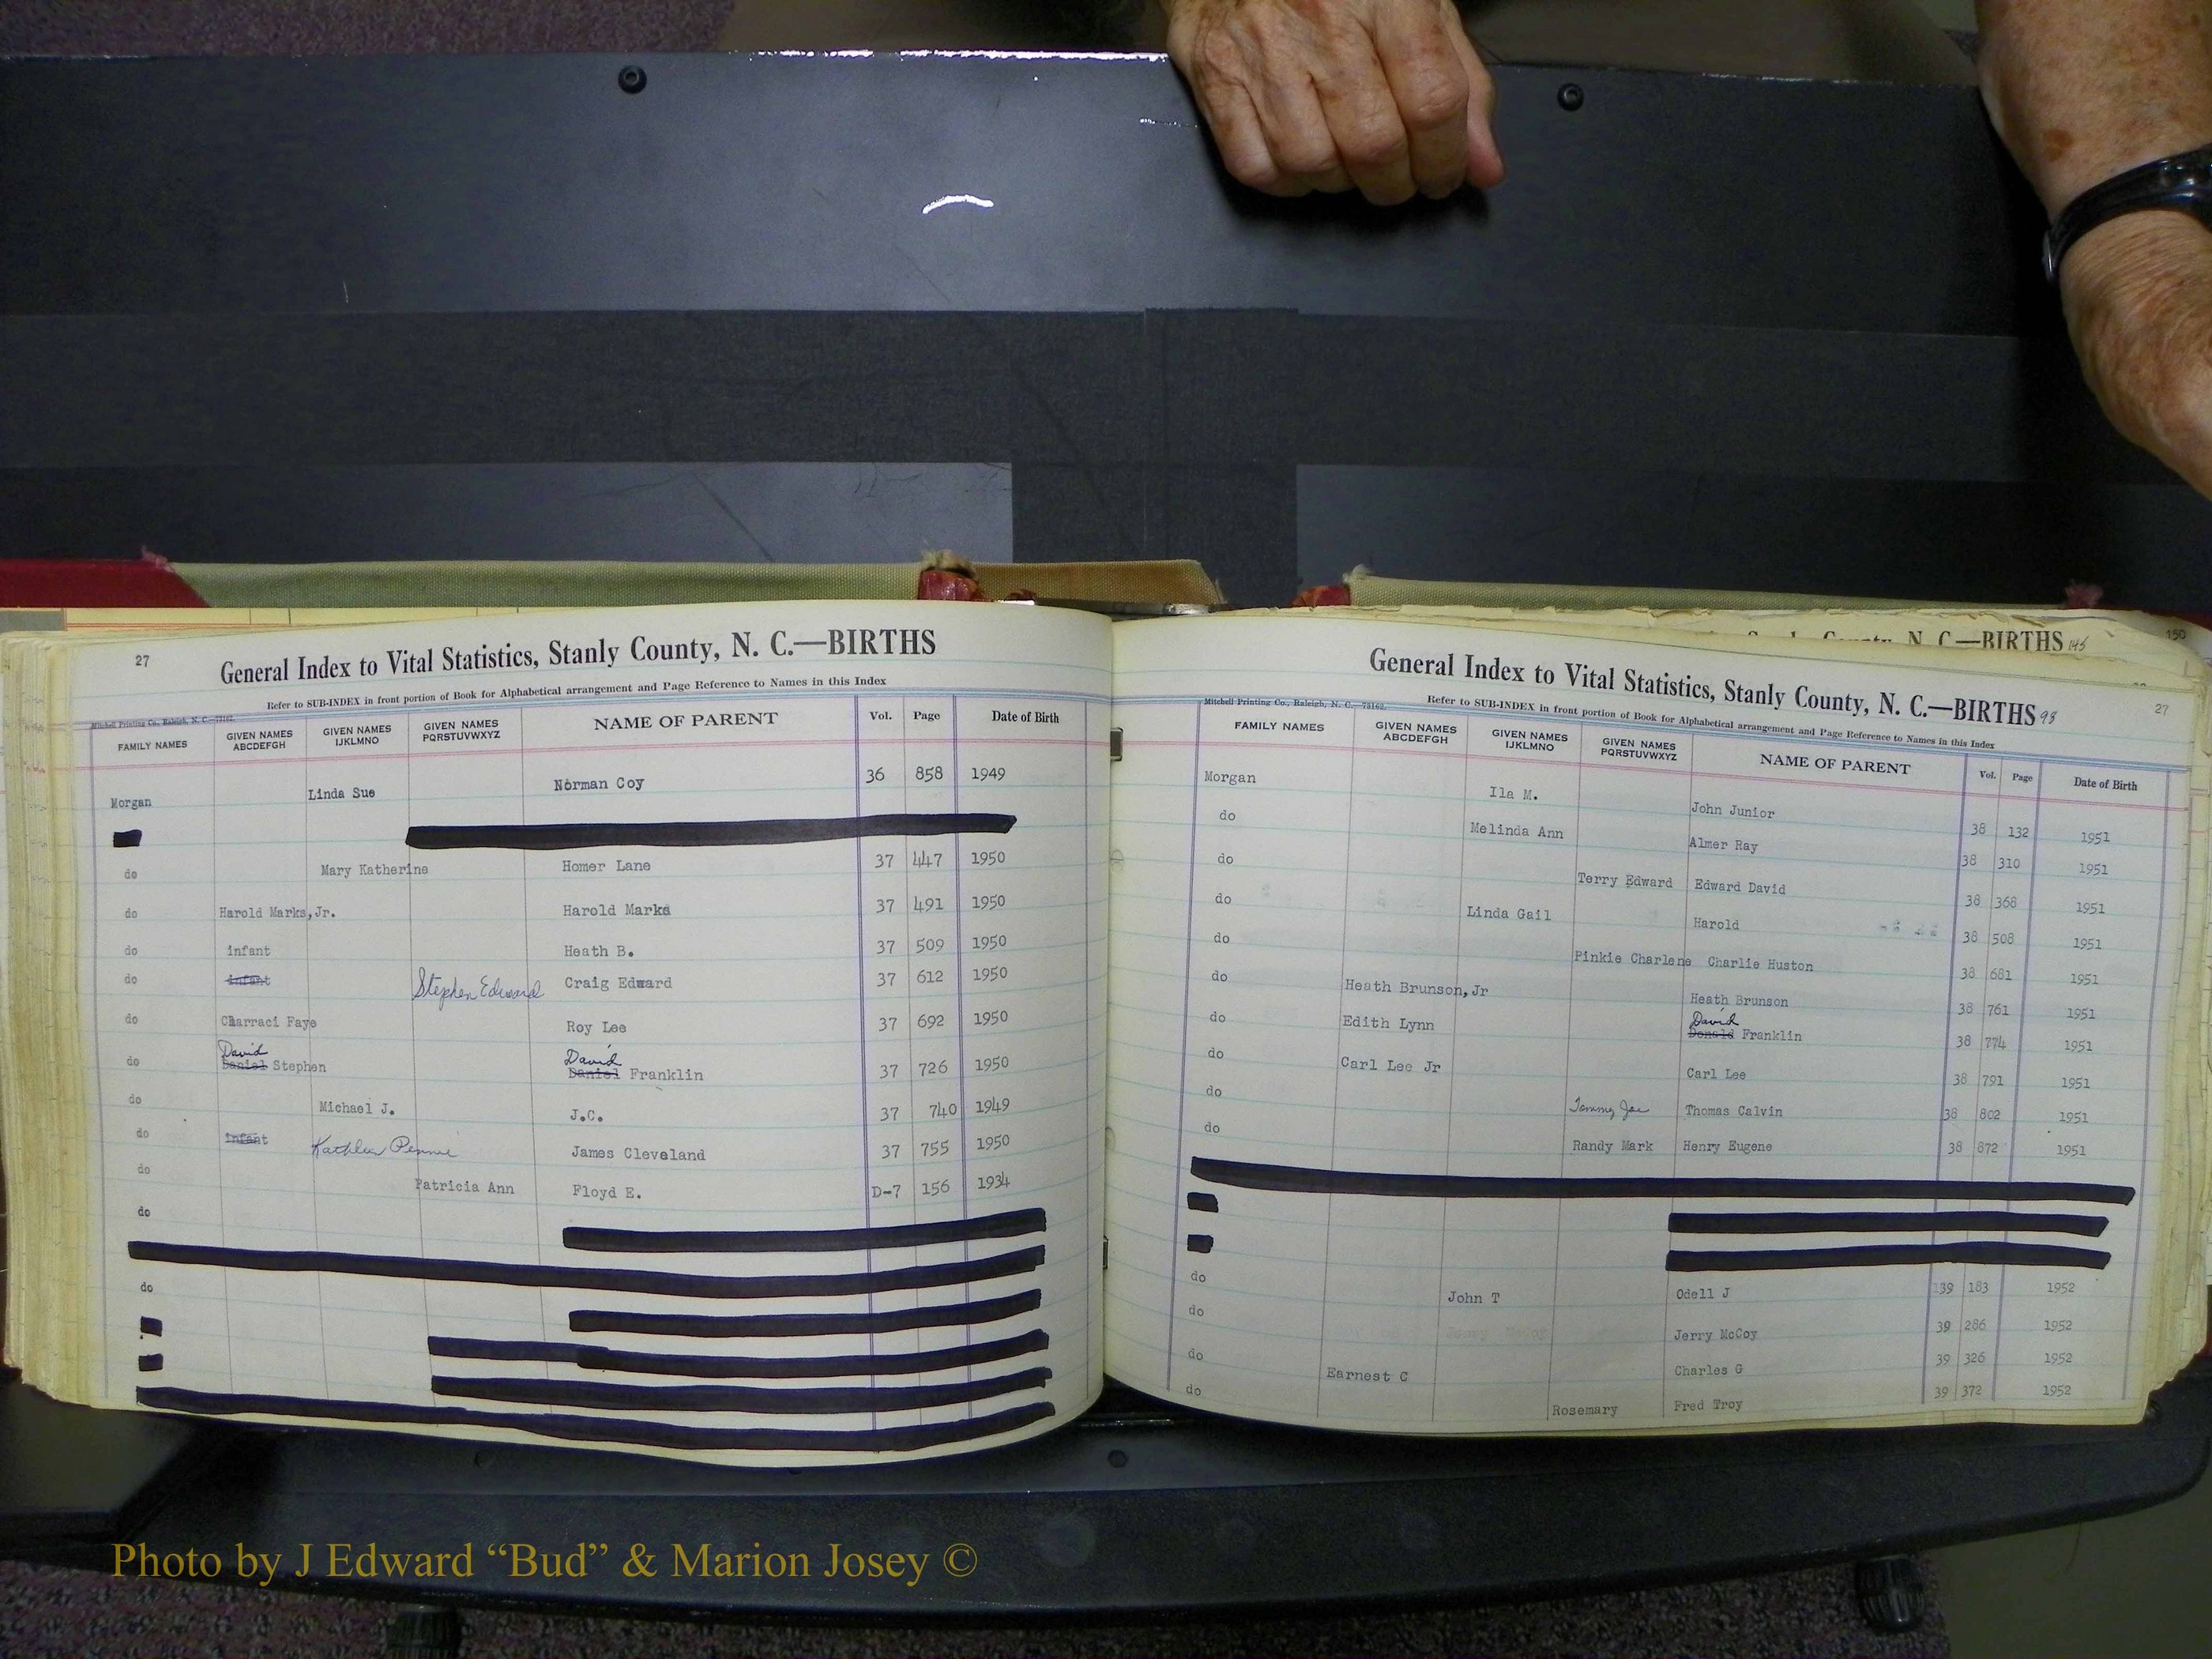 27
General Index to Vital Statistics, Stanly County, N. C.—BIRTHS
Refer to SUB-INDEX in front portion of Book for Alphabetical arrangement and Page Reference to Names in this Index
Mitchell Printing Co., Raleigh, N. C.—73162
FAMILY NAMES GIVEN NAMES ABCDEFGH GIVEN NAMES IJKLMNO GIVEN NAMES PQRSTUVWXYZ NAME OF PARENT Vol. Page Date of Birth
Morgan Linda Sue Norman Coy 36 858 1949
do Mary Katherine Homer Lane 37 447 1950
do Harold Marks, Jr. Harold Marks 37 491 1950
do infant Heath B. 37 509 1950
do infant Stephen Edward Craig Edward 37 612 1950
do Charraci Faye Roy Lee 37 692 1950
David David
do Daniel Stephen Daniel Franklin 37 726 1950
do Michael J. J.C. 37 740 1949
do infant Kathleen Pennie James Cleveland 37 755 1950
do Patricia Ann Floyd E. D-7 156 1934
do
do
S C N. C.—BIRTHS 145
150
General Index to Vital Statistics, Stanly County, N. C.—BIRTHS 98
27
Mitchell Printing Co., Raleigh, N. C.—73162
Refer to SUB-INDEX in front portion of Book for Alphabetical arrangement and Page Reference to Names in this Index
FAMILY NAMES GIVEN NAMES ABCDEFGH GIVEN NAMES IJKLMNO GIVEN NAMES PQRSTUVWXYZ NAME OF PARENT Vol. Page Date of Birth
Morgan Ila M. John Junior 38 132 1951
do Melinda Ann Almer Ray 38 310 1951
do Terry Edward Edward David 38 368 1951
do Linda Gail Harold 38 508 1951
do Pinkie Charlene Charlie Huston 38 681 1951
do Heath Brunson, Jr Heath Brunson 38 761 1951
David
do Edith Lynn Donald Franklin 38 774 1951
do Carl Lee Jr Carl Lee 38 791 1951
do Tommy Joe Thomas Calvin 38 802 1951
do Randy Mark Henry Eugene 38 872 1951
do John T Odell J 39 183 1952
do Jerry McCoy 39 286 1952
do Earnest C Charles G 39 326 1952
do Rosemary Fred Troy 39 372 1952
Photo by J Edward “Bud” & Marion Josey ©